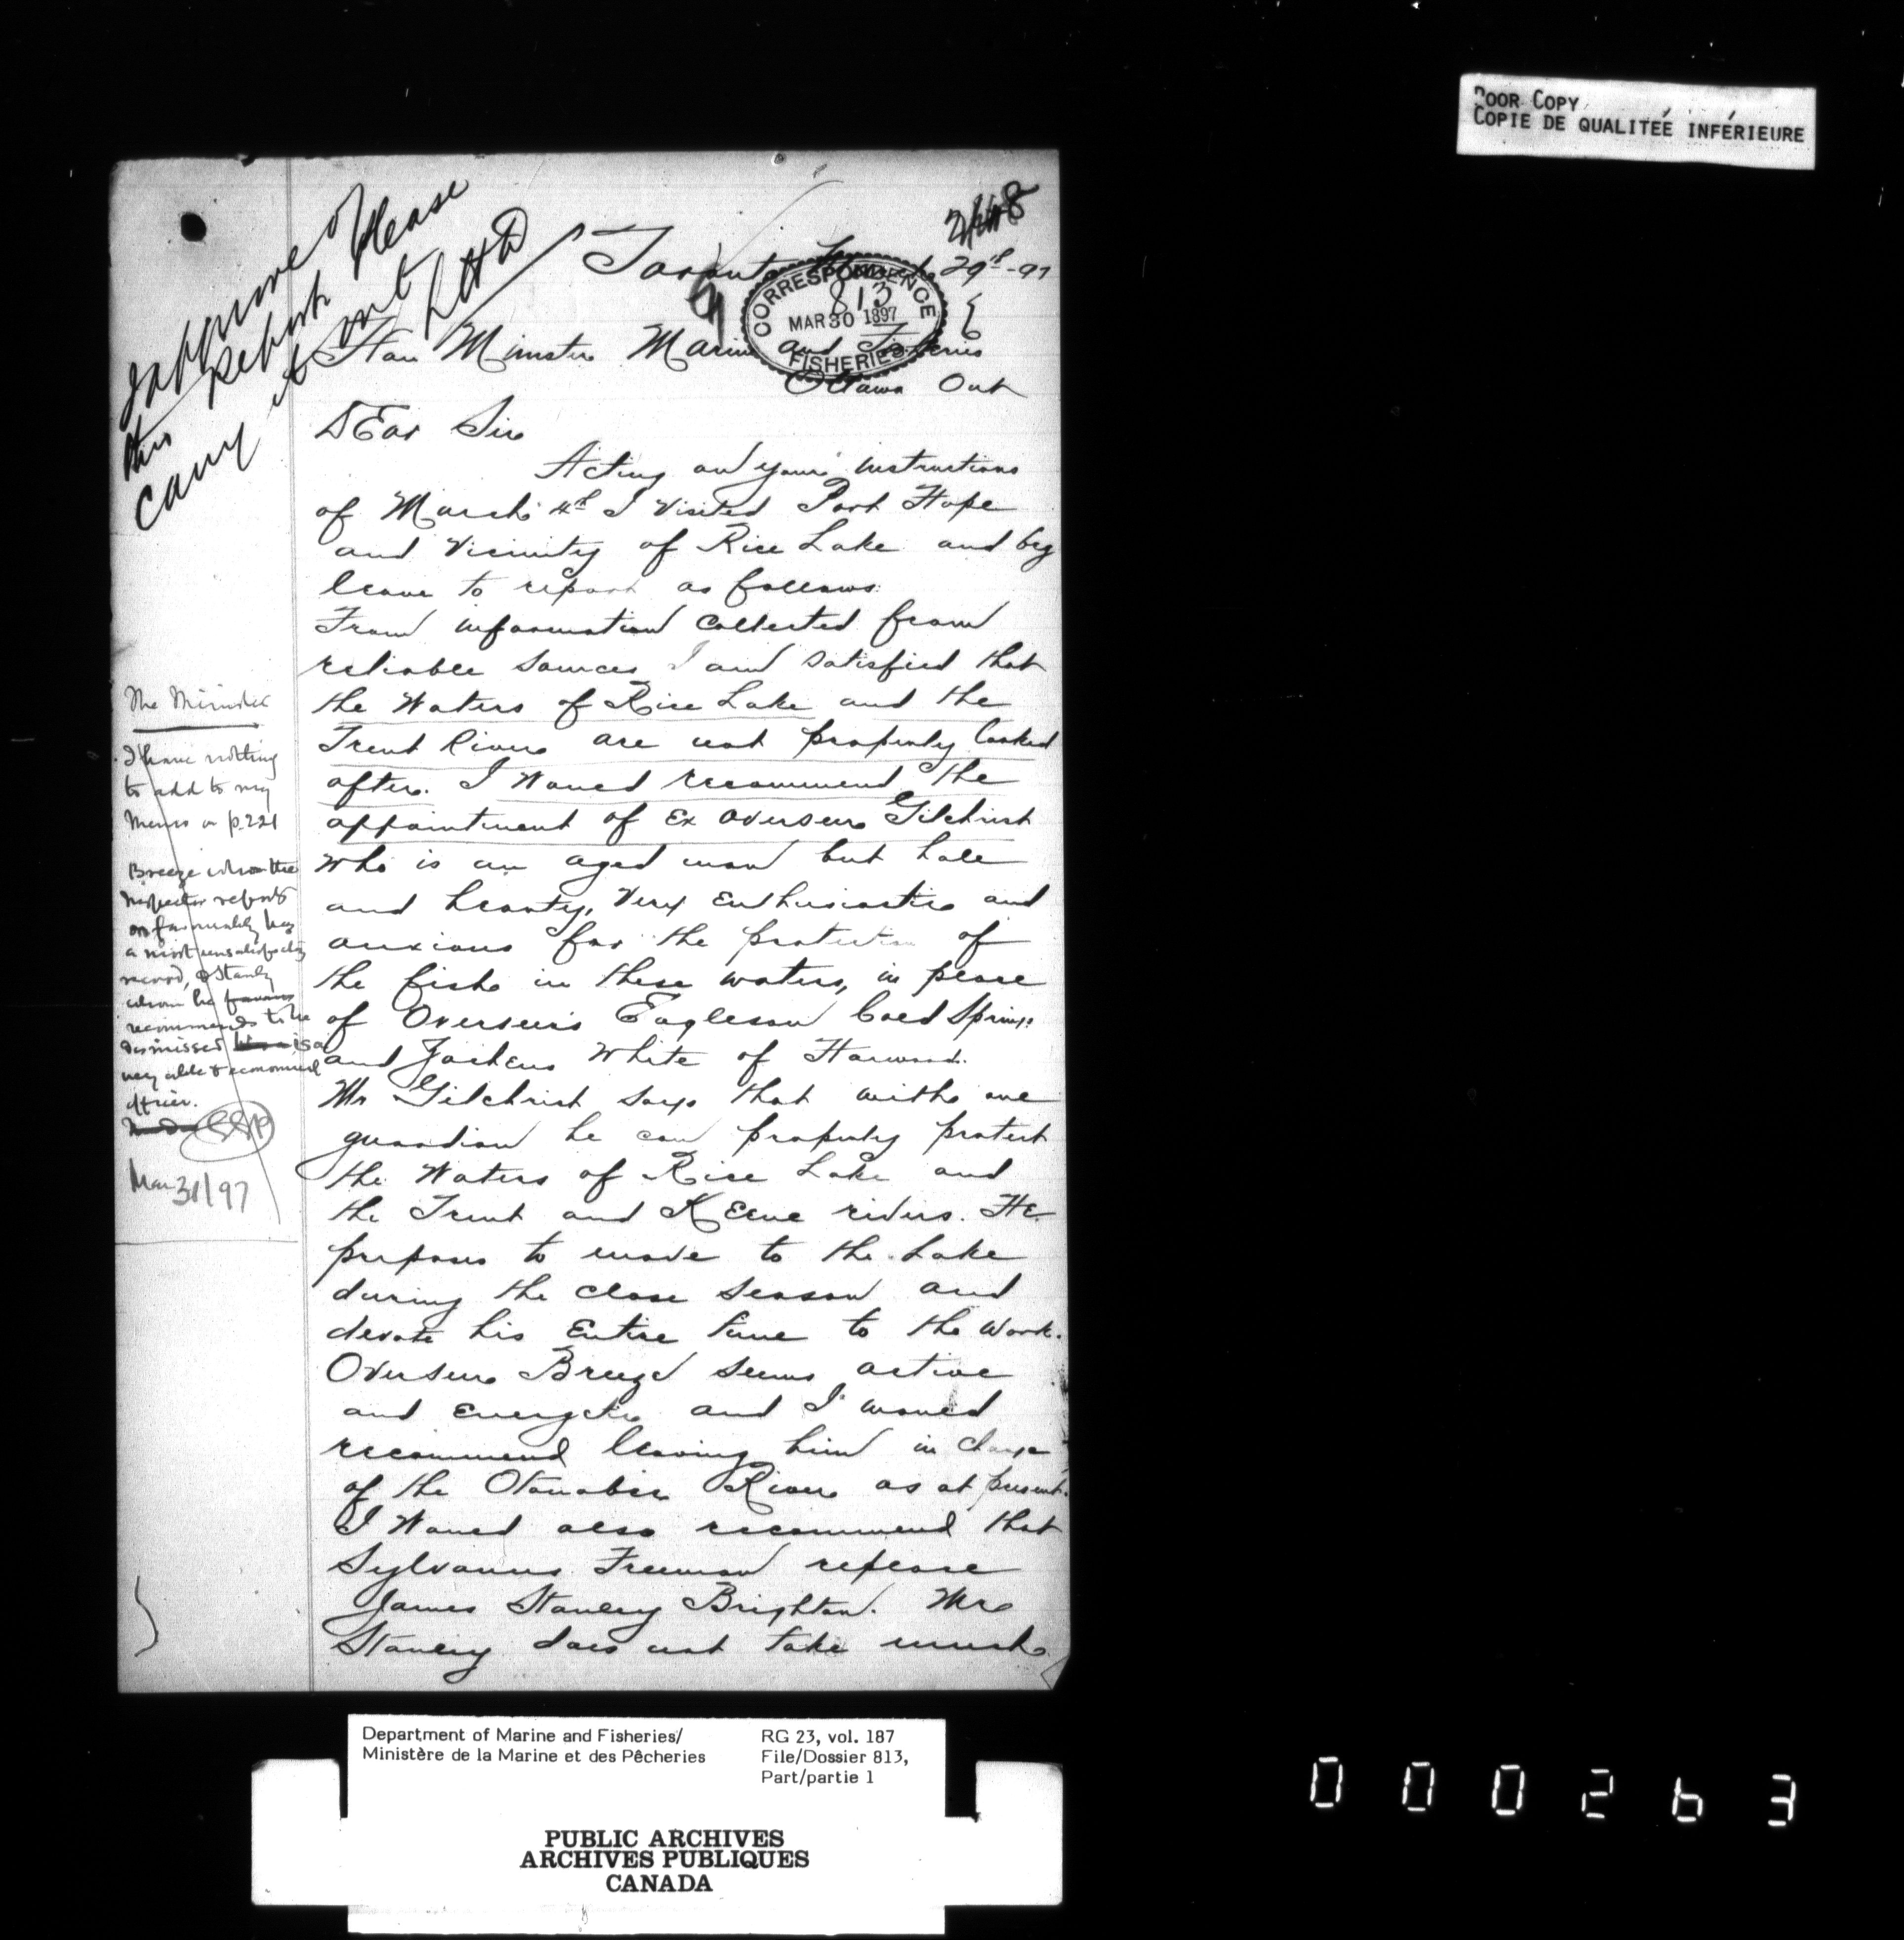 POOR COPY
COPIE DE QUALITEÉ INFÉRIEURE
I approve of
this report Please
carry it out
LHD
248
Toronto March 29th-97
CORRESPONDENCE
813
MAR 30 1897
FISHERIES
Hon Minister Marine and Fisheries
Ottawa Ont
DEar Sir
Acting on your instructions
of March 4th I visited Port Hope
and Vicinity of Rice Lake and beg
leave to report as follows:
From information collected from
reliable sources I am satisfied that
the Waters of Rice Lake and the
Trent River are not properly looked
after. I Would recommend the
appointment of Ex Overseer Gilchrist
Who is an aged man but hale
and hearty, Very Enthusiastic and
anxious for the protection of
the fish in these waters, in place
of Overseers Eagleson Coed Springs
and White of Harwood.
Mr Gilchrist says that with one
guardian he can properly protect
the Waters of Rice Lake and
the Trent and KEene rivers. He
proposes to move to the Lake
during the close season and
devote his Entire time to the Work.
Overseer Breeze seems active
and Energetic and I would
recommend leaving him in charge
of the Otonabee River as at present.
I Would also recommend that
Sylvanus Freeman replace
James Stanley Brighton. Mr
Stanley does not take much
The Minister
I have nothing
to add to my
Memo on p.221
Breeze whom the
inspector reports
on favourably has
a most unsatisfactory
record, & Stanley
whom he favours
recommends to be
dismissed is a
very able & economical
officer.
EEP
Mar 31/97
Department of Marine and Fisheries/
Ministère de la Marine et des Pêcheries
RG 23, vol. 187
File/Dossier 813,
Part/partie 1
PUBLIC ARCHIVES
ARCHIVES PUBLIQUES
CANADA
000263